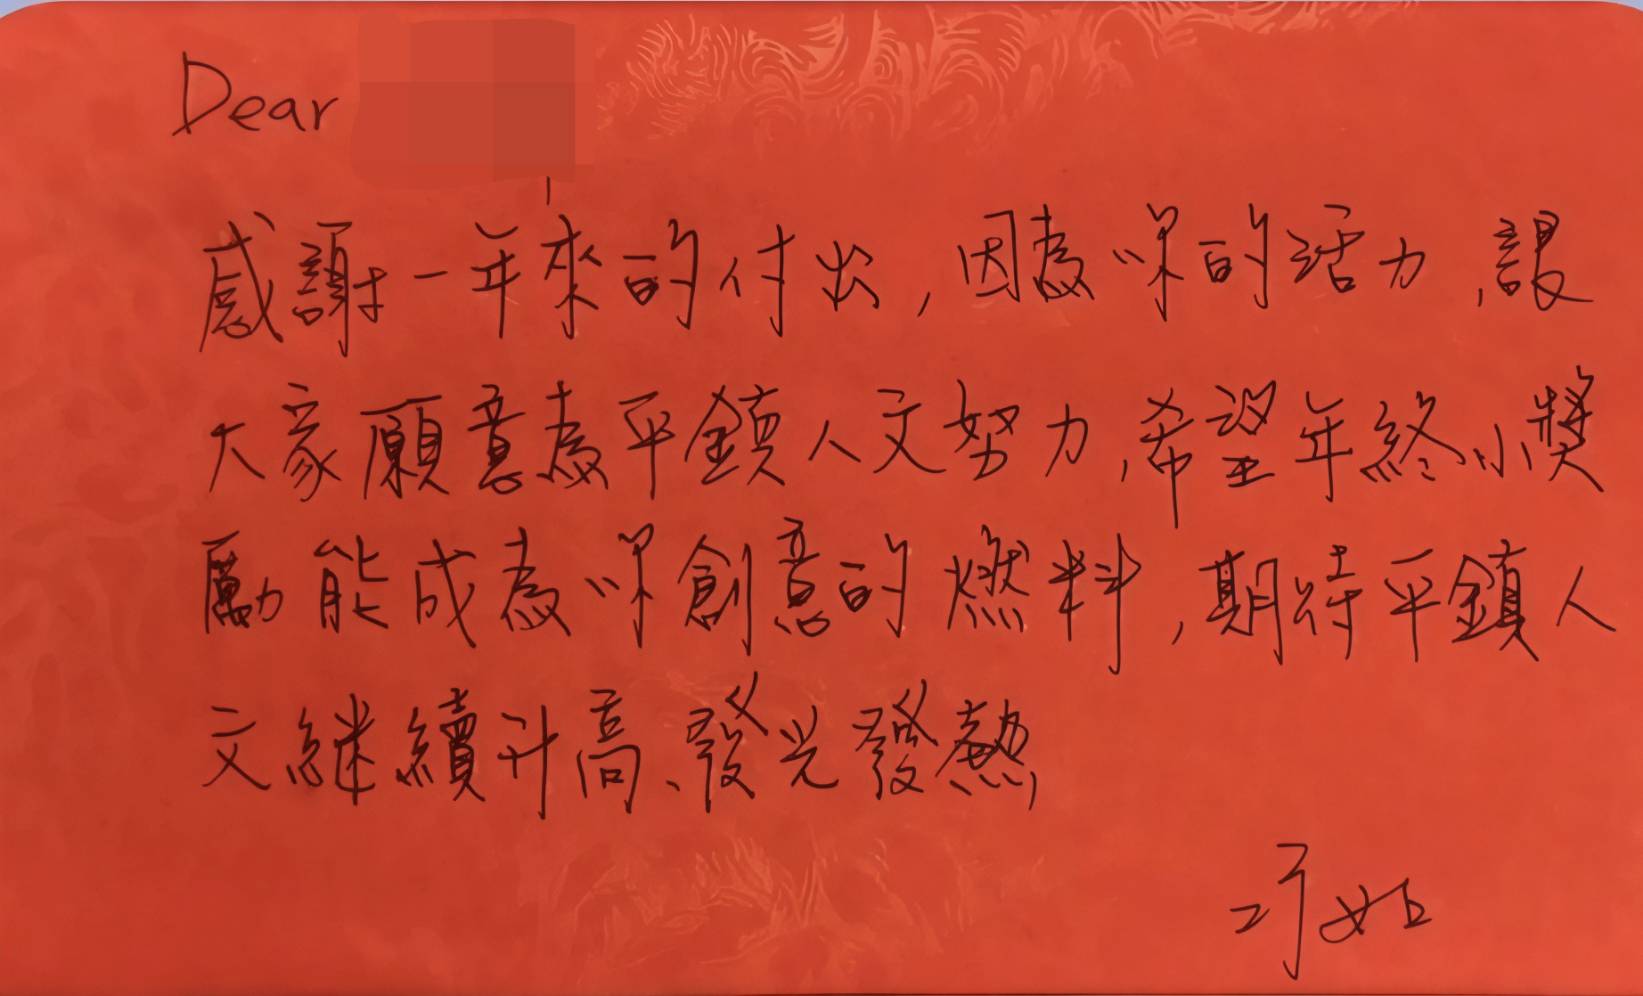 Dear
感謝一年來的付出,因為你的活力,讓
大家願意為平鎮人文努力,希望年終小獎
勵能成為你創意的燃料,期待平鎮人
文繼續升高、發光發熱,